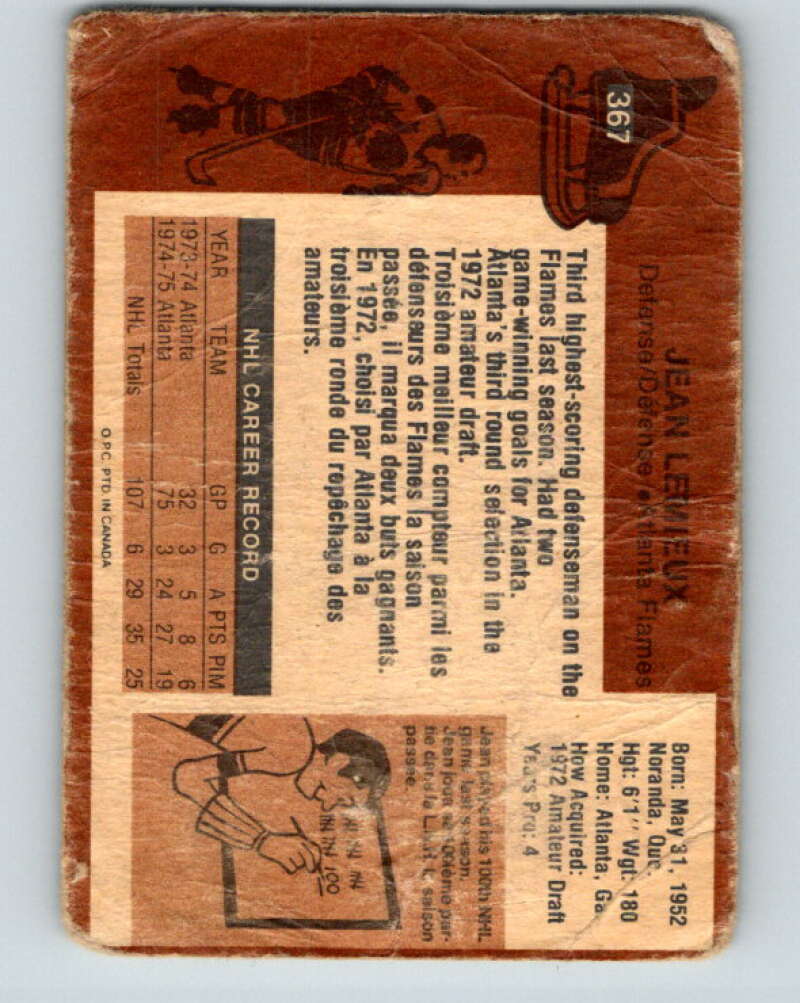 367
JEAN LEMIEUX
Defense/Défense/Atlanta Flames
Born: May 31, 1952
Noranda, Que.
Hgt: 6'1" Wgt: 180
Home: Atlanta, Ga
How Acquired:
1972 Amateur Draft
Years Pro: 4
Third highest-scoring defenseman on the
Flames last season. Had two
game-winning goals for Atlanta.
Atlanta's third round selection in the
1972 amateur draft.
Troisième meilleur compteur parmi les
défenseurs des Flames la saison
passée, il marqua deux buts gagnants.
En 1972, choisi par Atlanta à la
troisième ronde du repêchage des
amateurs.
NHL CAREER RECORD
YEAR TEAM GP G A PTS PIM
1973-74 Atlanta 32 3 5 8 6
1974-75 Atlanta 75 3 24 27 19
NHL Totals 107 6 29 35 25
O.P.C. PTD. IN CANADA
Jean played his 100th NHL
game last season.
Jean joua sa 100ième par-
tie dans la L.N.H. la saison
passée.
100